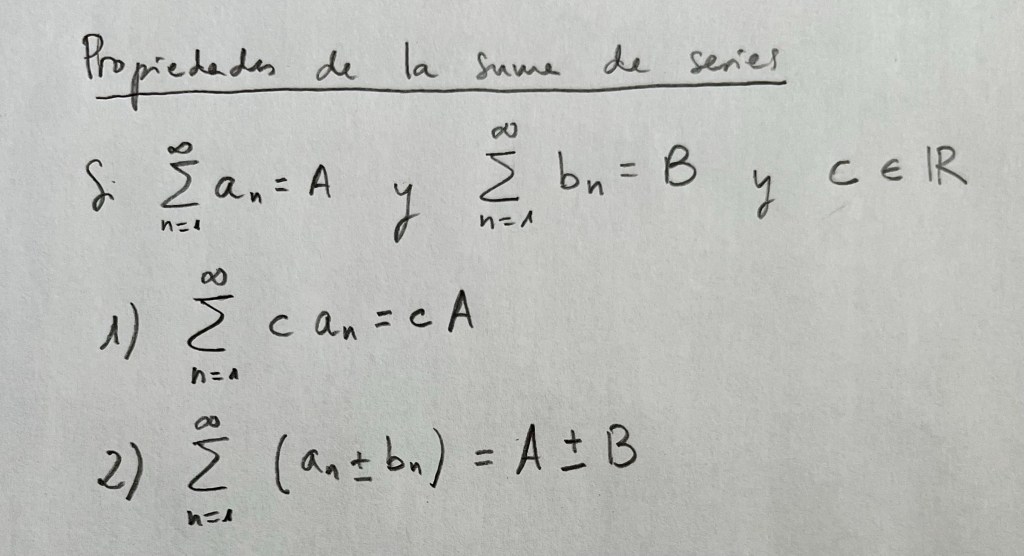 Propiedades de la suma de series
Si $\sum_{n=1}^{\infty} a_n = A$ y $\sum_{n=1}^{\infty} b_n = B$ y $c \in \mathbb{R}$
1) $\sum_{n=1}^{\infty} c\, a_n = c A$
2) $\sum_{n=1}^{\infty} (a_n \pm b_n) = A \pm B$